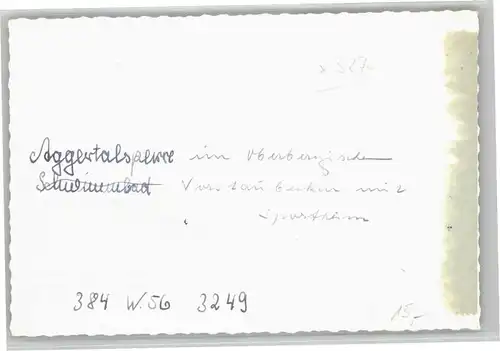 Aggertalsperre im Oberbergischen
Schwimmbad Vorstaubecken mit
Sportheim
384 W.56 3249
15,-